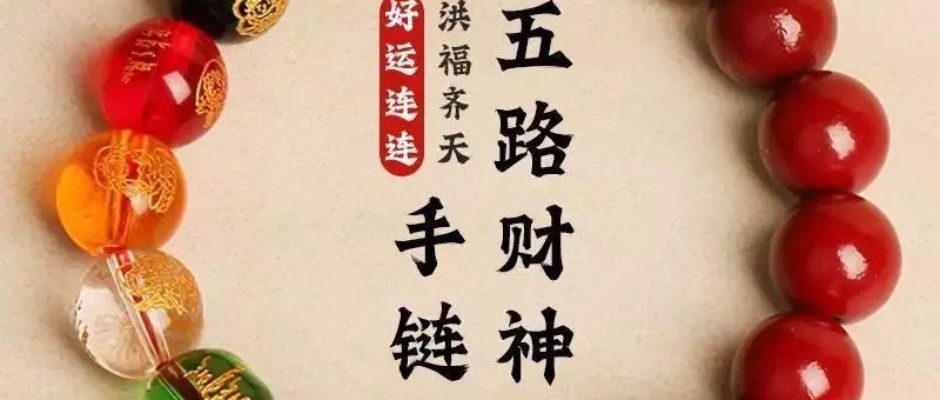 五路财神
手链
洪福齐天
好运连连